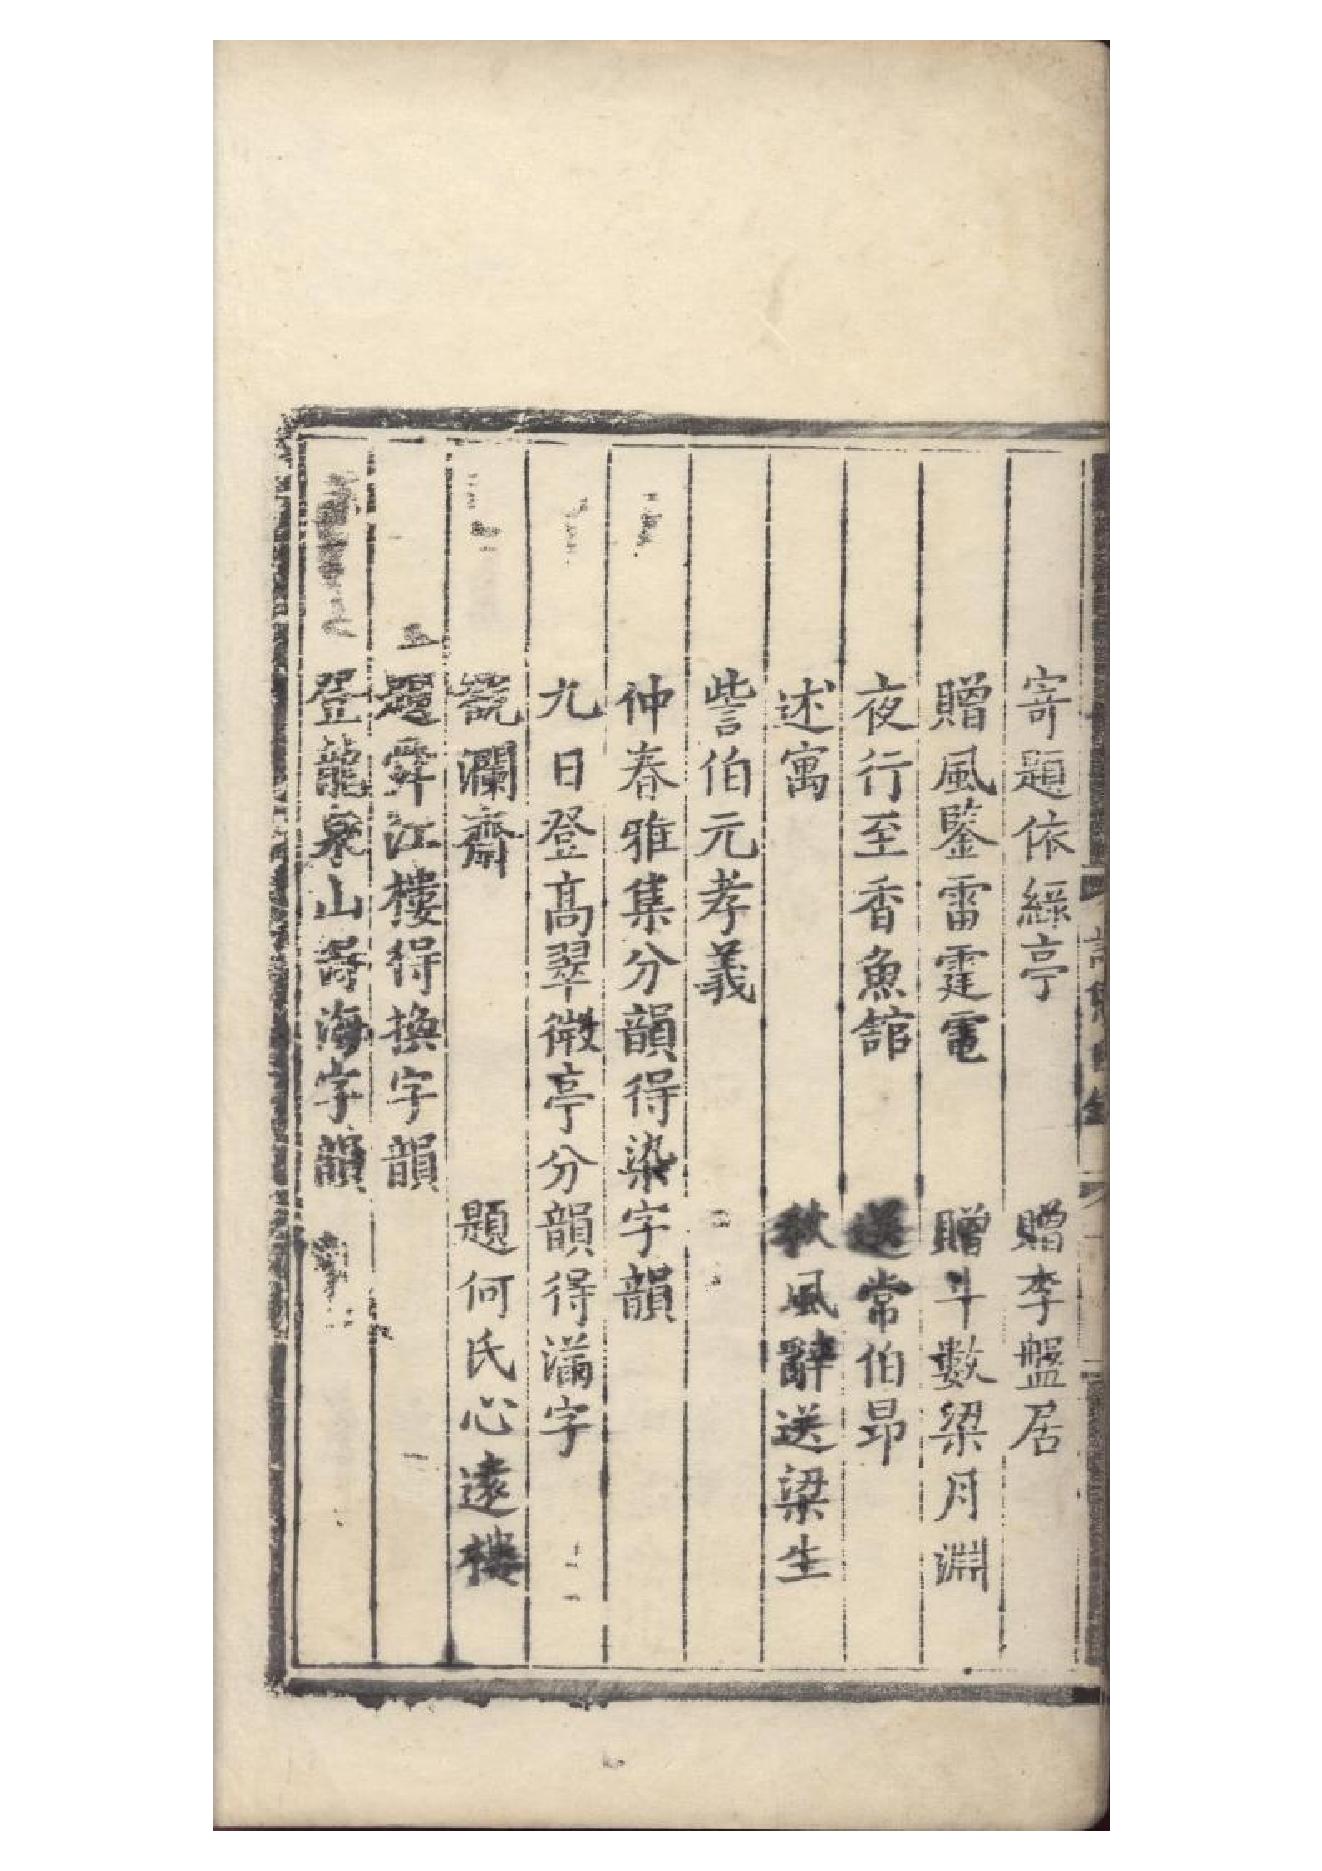 寄題依綠亭　贈李盤居
贈風鑒雷霆電　贈斗數梁月淵
夜行至香魚舘　送常伯昂
述寓　秋風辭送梁生
訾伯元孝義
仲春雅集分韻得染字韻
九日登高翠微亭分韻得滿字
觀瀾齋　題何氏心遠樓
題舜江樓得換字韻
登龍泉山得海字韻